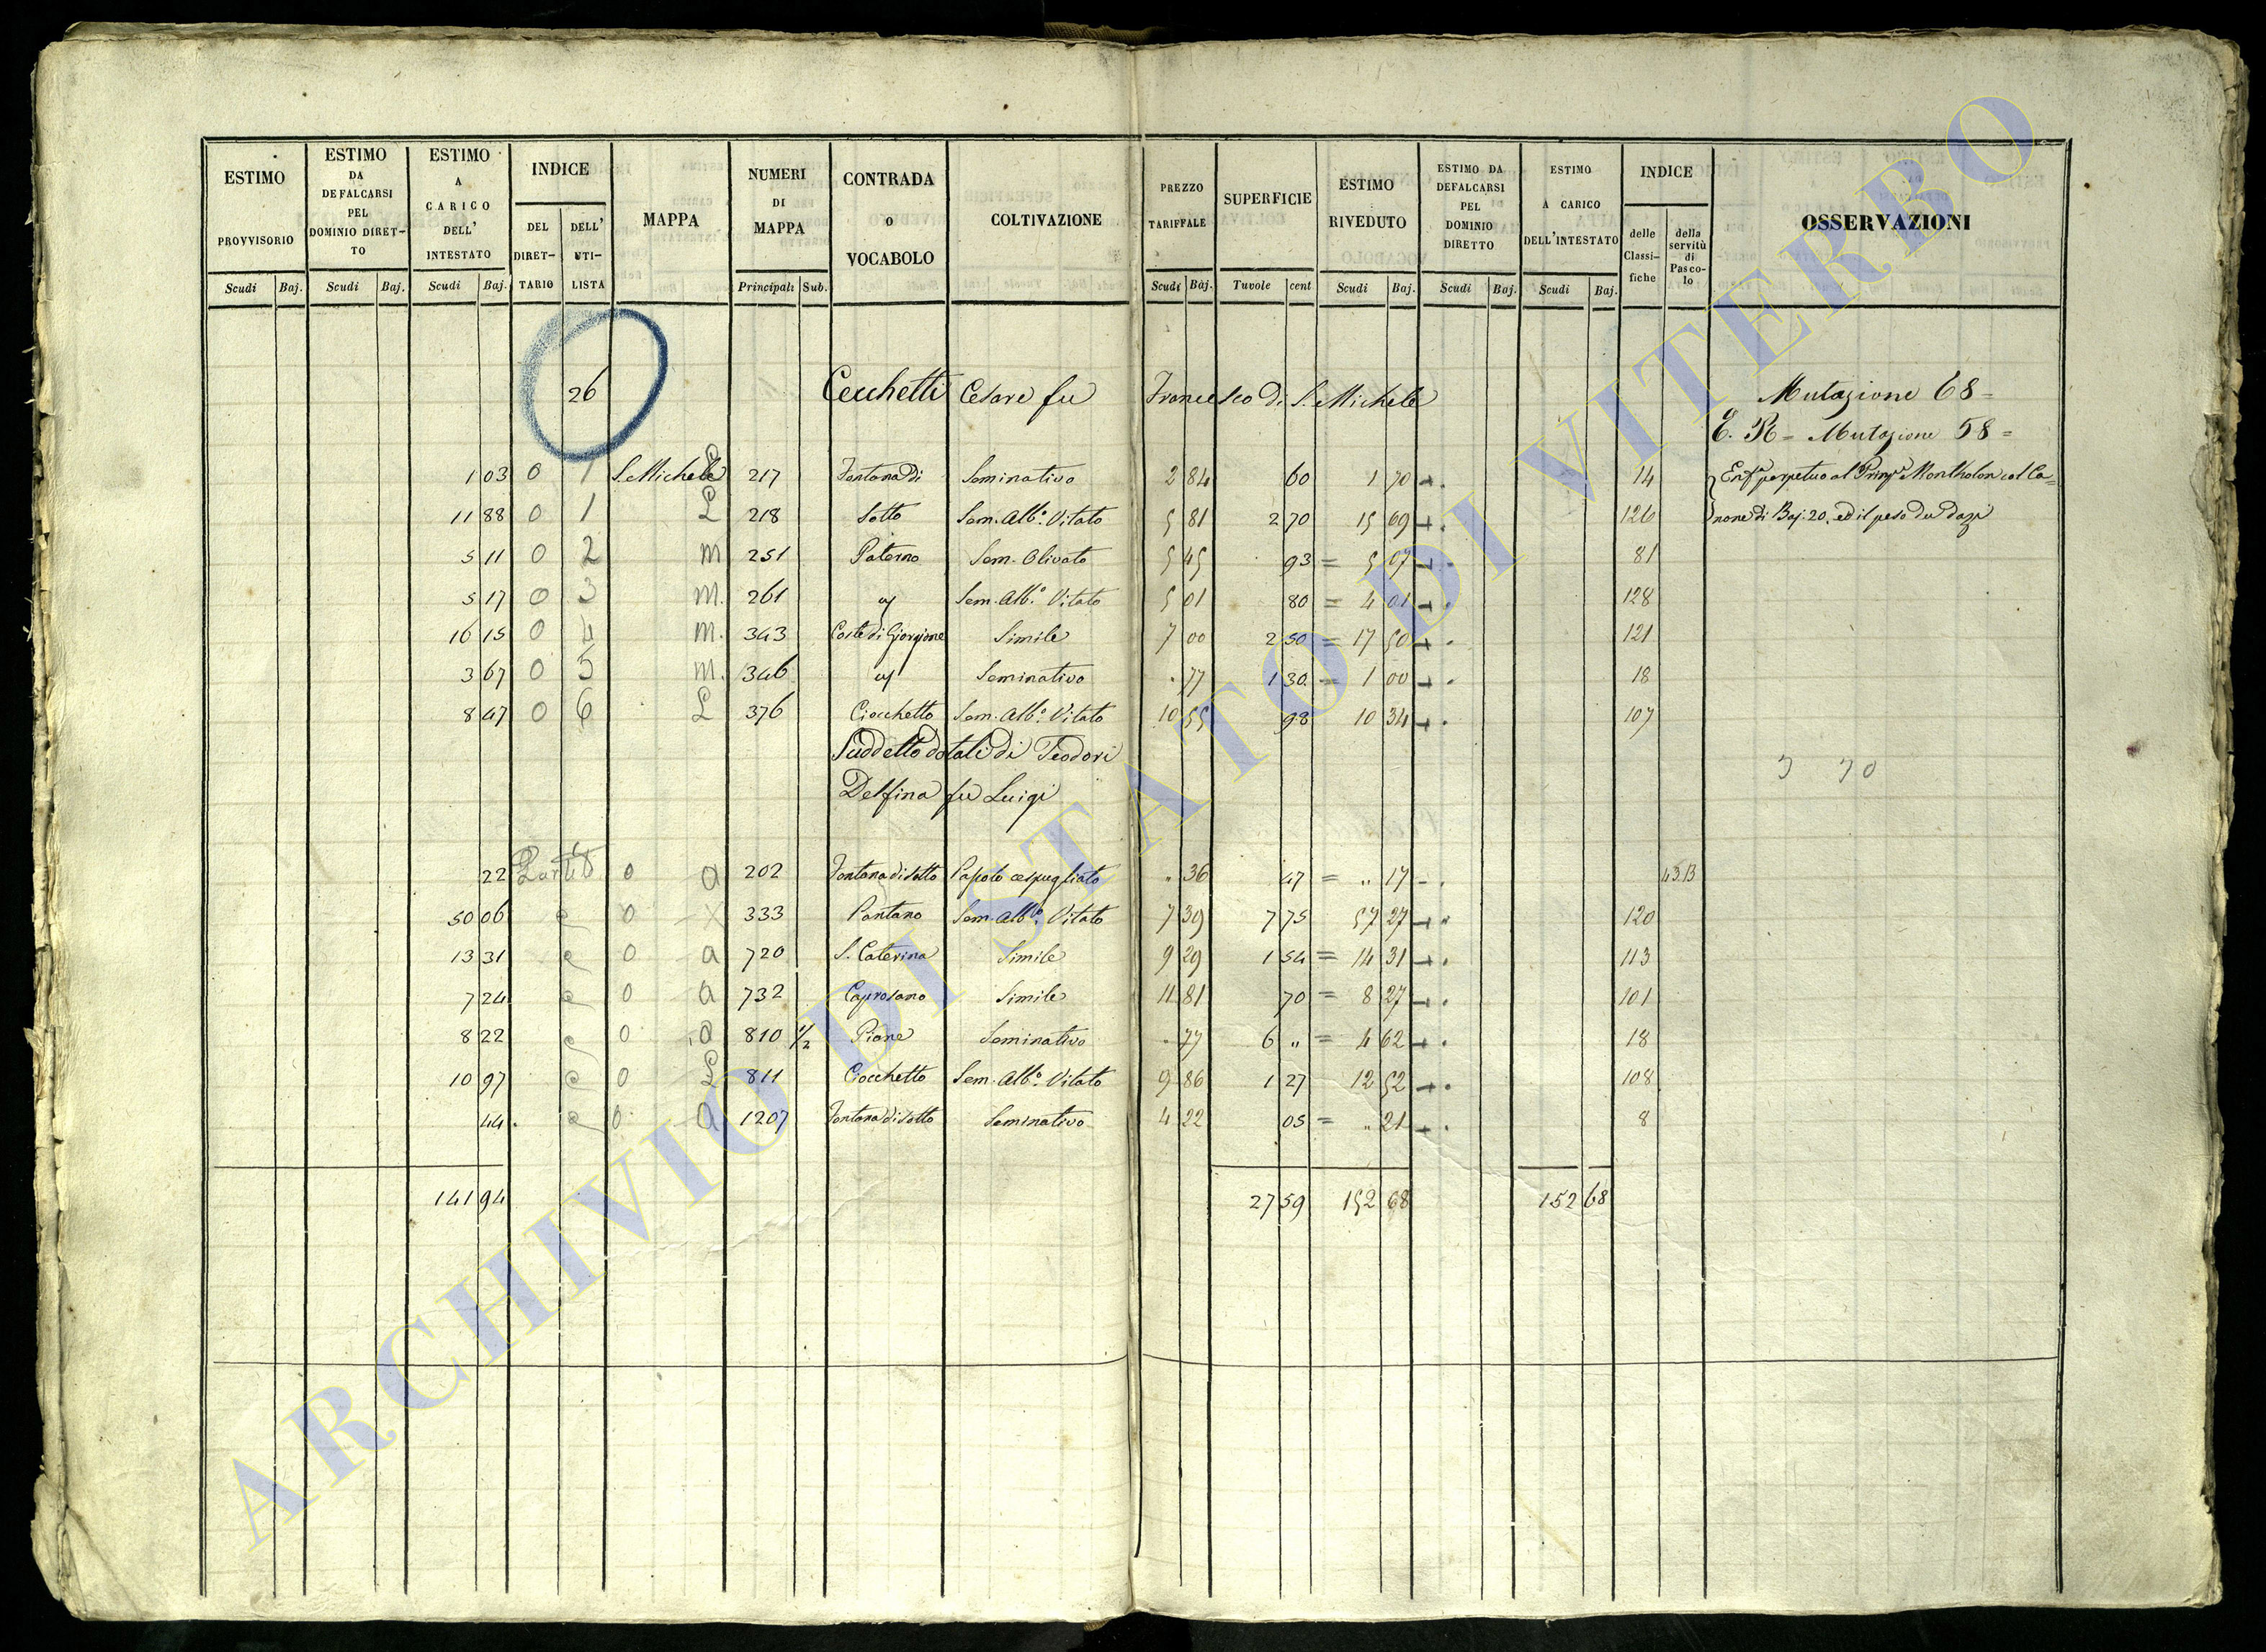 ESTIMO PROVVISORIO
ESTIMO DA DEFALCARSI PEL DOMINIO DIRETTO
ESTIMO A CARICO DELL' INTESTATO
INDICE
DEL DIRETTARIO
DELL' UTILISTA
MAPPA
NUMERI DI MAPPA
CONTRADA O VOCABOLO
COLTIVAZIONE
PREZZO TARIFFALE
SUPERFICIE
ESTIMO RIVEDUTO
ESTIMO DA DEFALCARSI PEL DOMINIO DIRETTO
ESTIMO A CARICO DELL'INTESTATO
INDICE
delle Classifiche
della servitù di Pascolo
OSSERVAZIONI
Scudi Baj. Scudi Baj. Scudi Baj. Principali Sub. Scudi Baj. Tavole cent Scudi Baj. Scudi Baj. Scudi Baj.
26 Cecchetti Cesare fu Francesco di S. Michele Mutazione 68 =
E. R = Mutazione 58 =
1 03 0 1 S. Michele L 217 Fontana di Seminativo 2 84 60 1 70 14 Enfa perpetua al Prinpe Montholon col Ca=
11 88 0 1 L 218 Sotto Sem. Albo. Vitato 5 81 2 70 15 69 126 none di Baj. 20. ed il peso de dazi
5 11 0 2 m 251 Paterno Sem. Olivato 5 45 93 = 5 07 81
5 17 0 3 m. 261 Sem. Albo. Vitato 5 01 80 = 4 01 128
16 15 0 4 m. 343 Coste di Giorgione Simile 7 00 2 50 = 17 50 121
3 67 0 5 m. 346 Seminativo . 77 1 30 = 1 00 18
8 47 0 6 L 376 Ciocchetto Sem. Albo. Vitato 10 55 98 10 34 107
Suddetto dotali di Teodori
Delfina fu Luigi
22 0 a 202 Fontana di Sotto Pascolo cespugliato . 36 47 = " 17 43.B
50 06 0 X 333 Pantano Sem. Albo. Vitato 7 39 7 75 57 27 120
13 31 0 a 720 S. Caterina Simile 9 29 1 54 = 14 31 113
7 24 0 a 732 Caprosano Simile 11 81 70 = 8 27 101
8 22 0 a 810 1/2 Piane Seminativo . 77 6 " = 4 62 18
10 97 0 L 811 Ciocchetto Sem. Albo. Vitato 9 86 1 27 12 52 108
44 0 a 1207 Fontana di Sotto Seminativo 4 22 05 = " 21 8
141 94 27 59 152 68 152 68
ARCHIVIO DI STATO DI VITERBO